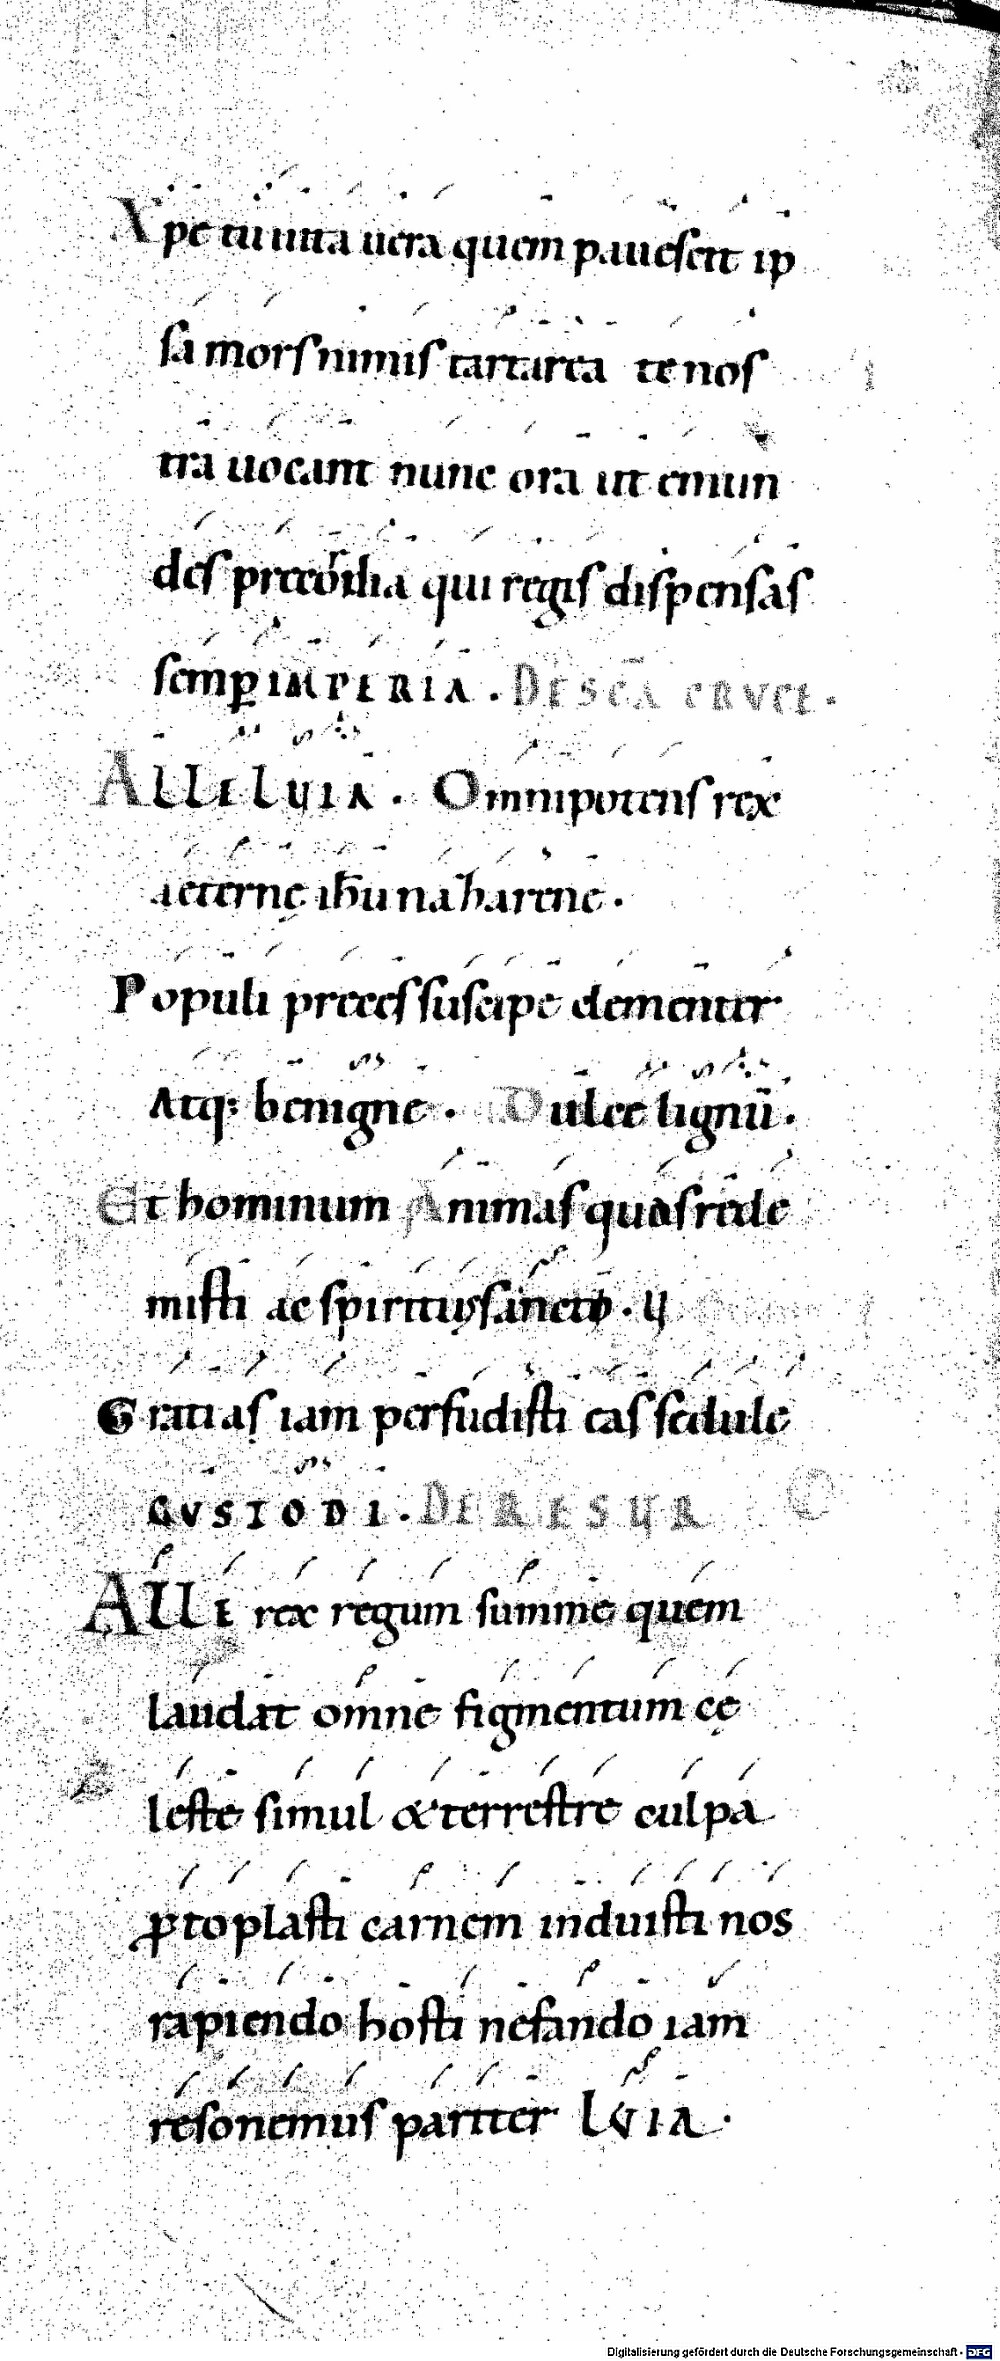 Xpe tu uita uera quem pauescit ip
sa mors nimis tartarea te nos
tra uocant nunc ora ut emun
des precordia qui regis dispensas
semꝑ IMPERIA . DE SCĀ CRUCE .
ALLELUIA . Omnipotens rex
aeternę ihu nazarene .
Populi preces suscipe clementer
Atq; benigne . Dulce lignū .
Et hominum Animas quas rede
misti ac spiritus sancto . ij
Gratias iam perfudisti eas sedule
CVSTODI . DE RESUR
ALLE rex regum summe quem
laudat omne figmentum cę
leste simul & terrestre culpa
ꝓtoplasti carnem induisti nos
rapiendo hosti nefando iam
resonemus pariter LVIA .
Digitalisierung gefördert durch die Deutsche Forschungsgemeinschaft - DFG